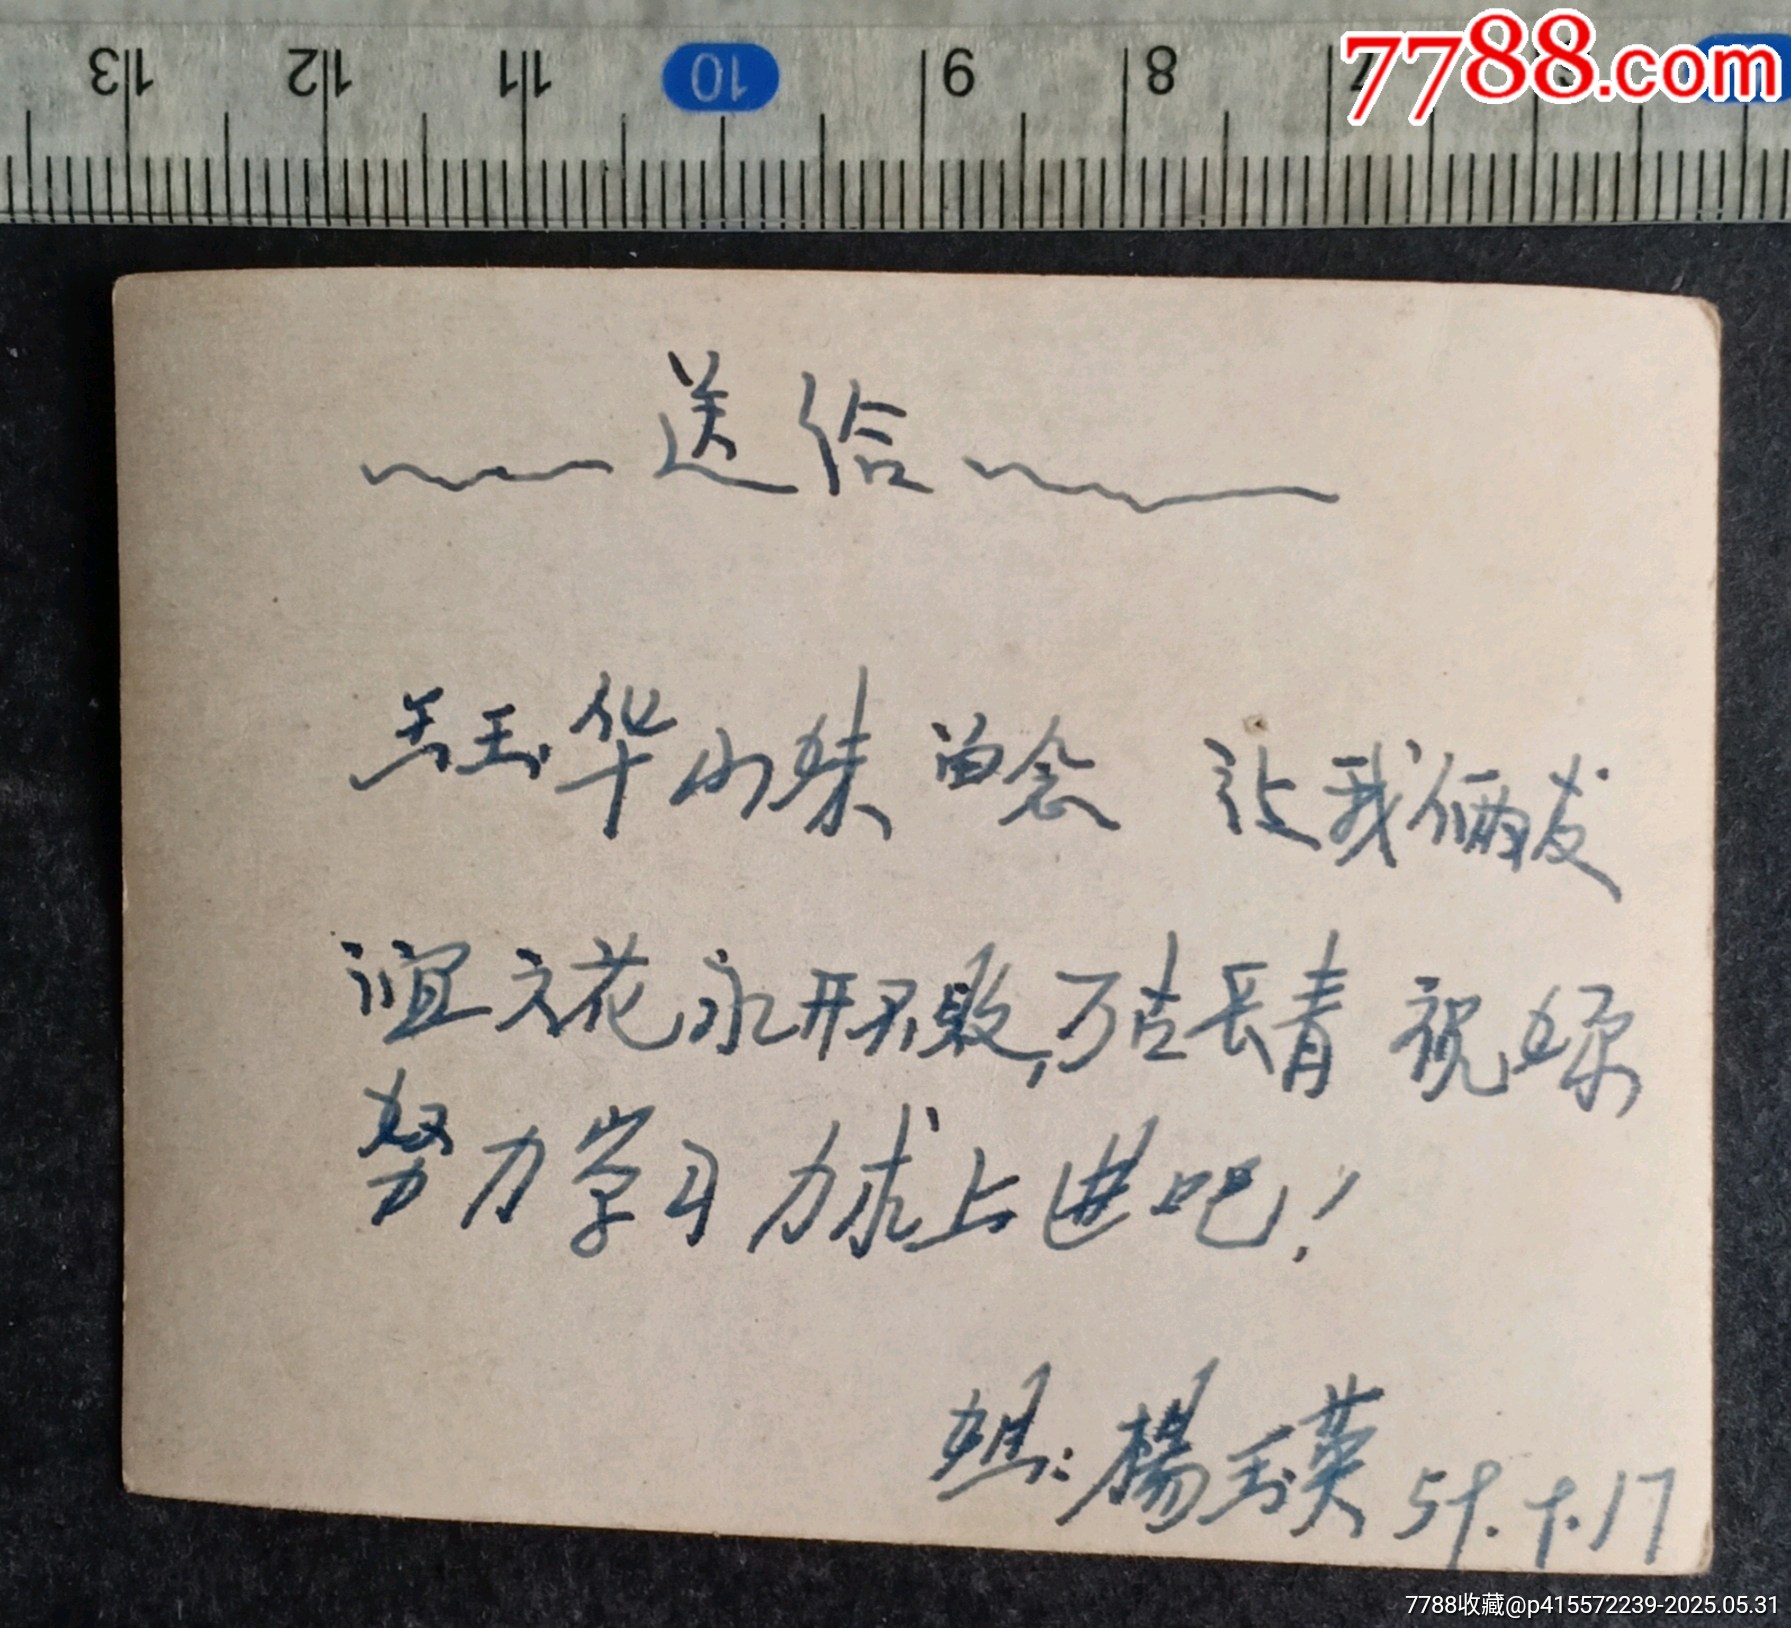 13 12 11 10 9 8 7
7788.com
送给
玉华小妹 留念 让我俩友
谊之花永开不败,万古长青 祝妳
努力学习 力求上进吧!
姐:楊玉英
7788收藏@p415572239-2025.05.31